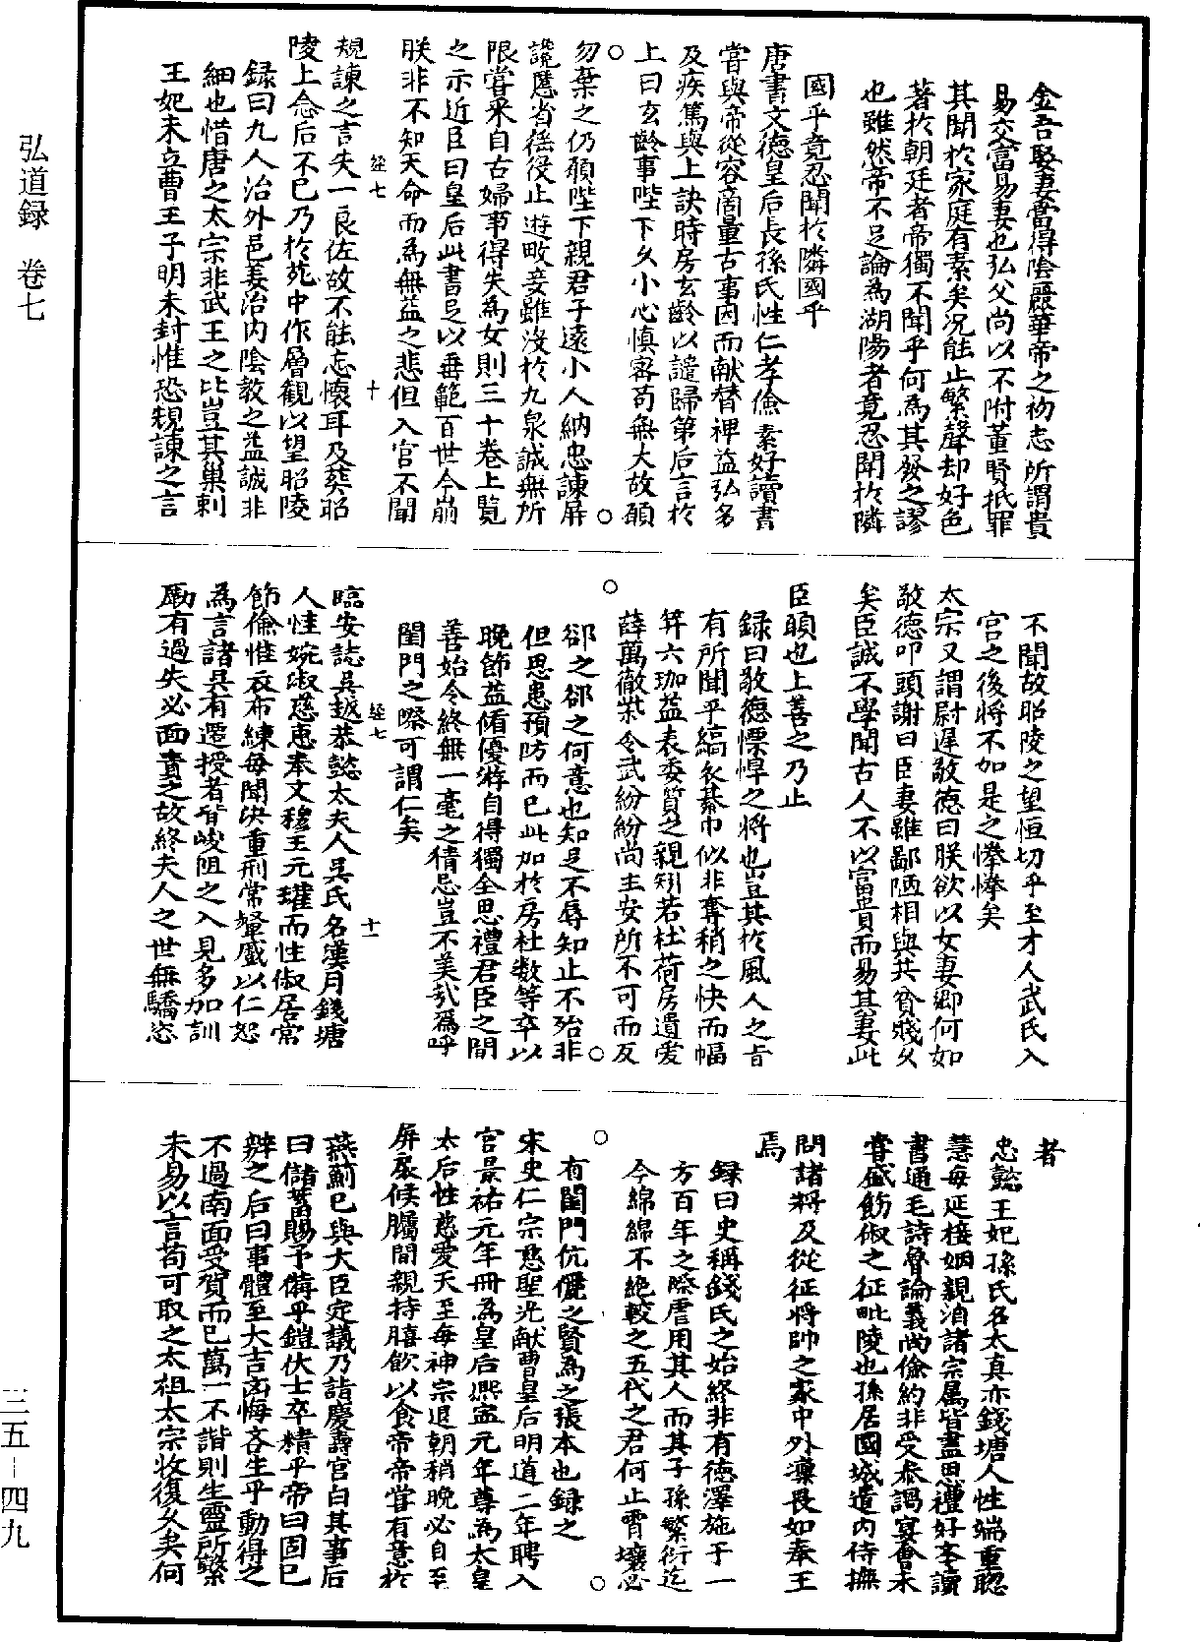 金吾娶妻當得陰麗華帝之初志所謂貴
易交富易妻也弘父尚以不附董賢抵罪
其聞於家庭有素矣况能止繁聲却好色
著於朝廷者帝獨不聞乎何為其發之謬
也雖然帝不足論為湖陽者竟忍聞於隣
國乎竟忍聞於隣國乎
唐書文德皇后長孫氏性仁孝儉素好讀書
嘗與帝從容商量古事因而献替裨益弘多
及疾篤與上訣時房玄齡以譴歸第后言於
上曰玄齡事陛下久小心慎密苟無大故願
勿棄之仍願陛下親君子遠小人納忠諫屏
讒慝省徭役止遊畋妾雖沒於九泉誠無所
限嘗采自古婦事得失為女則三十卷上覧
之示近臣曰皇后此書足以垂範百世今崩
朕非不知天命而為無益之悲但入宫不聞
經七 十
規諫之言失一良佐故不能忘懷耳及葬昭
陵上念后不已乃於苑中作層觀以望昭陵
録曰九人治外邑姜治内陰教之益誠非
細也惜唐之太宗非武王之比豈其巢剌
王妃未立曹王子明未封惟恐規諫之言
不聞故昭陵之望恒切乎至才人武氏入
宫之後將不如是之惓惓矣
太宗又謂尉遲敬德曰朕欲以女妻卿何如
敬德叩頭謝曰臣妻雖鄙陋相與共貧賤久
矣臣誠不學聞古人不以富貴而易其妻此
臣頭也上善之乃止
録曰敬德慓悍之將也豈其於風人之旨
有所聞乎縞衣綦巾似非奪矟之快而幅
笄六珈益表委質之親矧若杜荷房遺爱
薛萬徹柴令武紛紛尚主安所不可而反
郤之郤之何意也知足不辱知止不殆非
但思患預防而已此如於房杜数等卒以
晚節益脩優游自得獨全思禮君臣之間
善始令終無一毫之猜忌豈不美哉嗚呼
閨門之際可謂仁矣
經七 十一
臨安誌吳越恭懿太夫人吳氏名漢月錢塘
人性婉淑慈惠奉文穆王元瓘而性俶居常
節儉惟衣布練每聞决重刑常顰蹙以仁恕
為言諸吳有遷授者皆峻阻之入見多加訓
勵有過失必面責之故終夫人之世無驕恣
者
忠懿王妃孫氏名太真亦錢塘人性端重聰
慧每延接姻親洎諸宗属皆盡恩禮好學讀
書通毛詩魯論義尚儉約非受参謁宴會未
嘗盛飾俶之征毗陵也孫居國城遣内侍撫
問諸將及從征將帥之家中外凜畏如奉王
焉
録曰史稱錢氏之始終非有德澤施于一
方百年之際虐用其人而其子孫繁衍迄
今綿綿不絶較之五代之君何止霄壤必
有閨門伉儷之賢為之張本也録之
宋史仁宗慈聖光献曹皇后明道二年聘入
宫景祐元年冊為皇后熙寧元年尊為太皇
太后性慈爱天至每神宗退朝稍晚必自至
屏扆候矚間親持膳飲以食帝帝嘗有意於
燕薊已與大臣定議乃詣慶壽宫白其事后
曰儲蓄賜予備乎鎧仗士卒精乎帝曰固已
辦之后曰事體至大吉凶悔吝生乎動得之
不過南面受賀而已萬一不諧則生靈所繫
未易以言苟可取之太祖太宗收復久矣何
弘道録 卷七
三五-四九